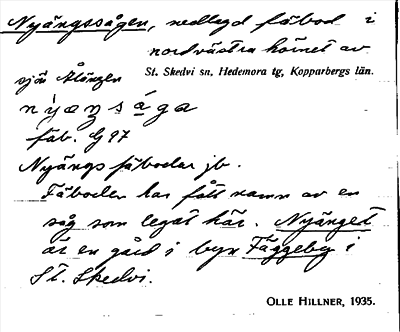 Nyängssågen, nedlagd fäbod i
nordvästra hörnet av
sjön
St. Skedvi sn, Hedemora tg, Kopparbergs län.
fäb. G 97
Nyängs fäbodar jb.
Fäboden har fått namn av en
såg som legat här. Nyänget
är en gård i byn Fäggeby i
St. Skedvi.
OLLE HILLNER, 1935.